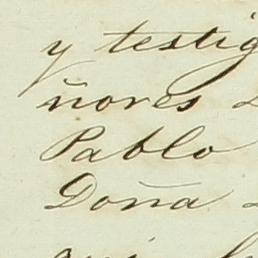 y testig
ñores
Pablo
Doña